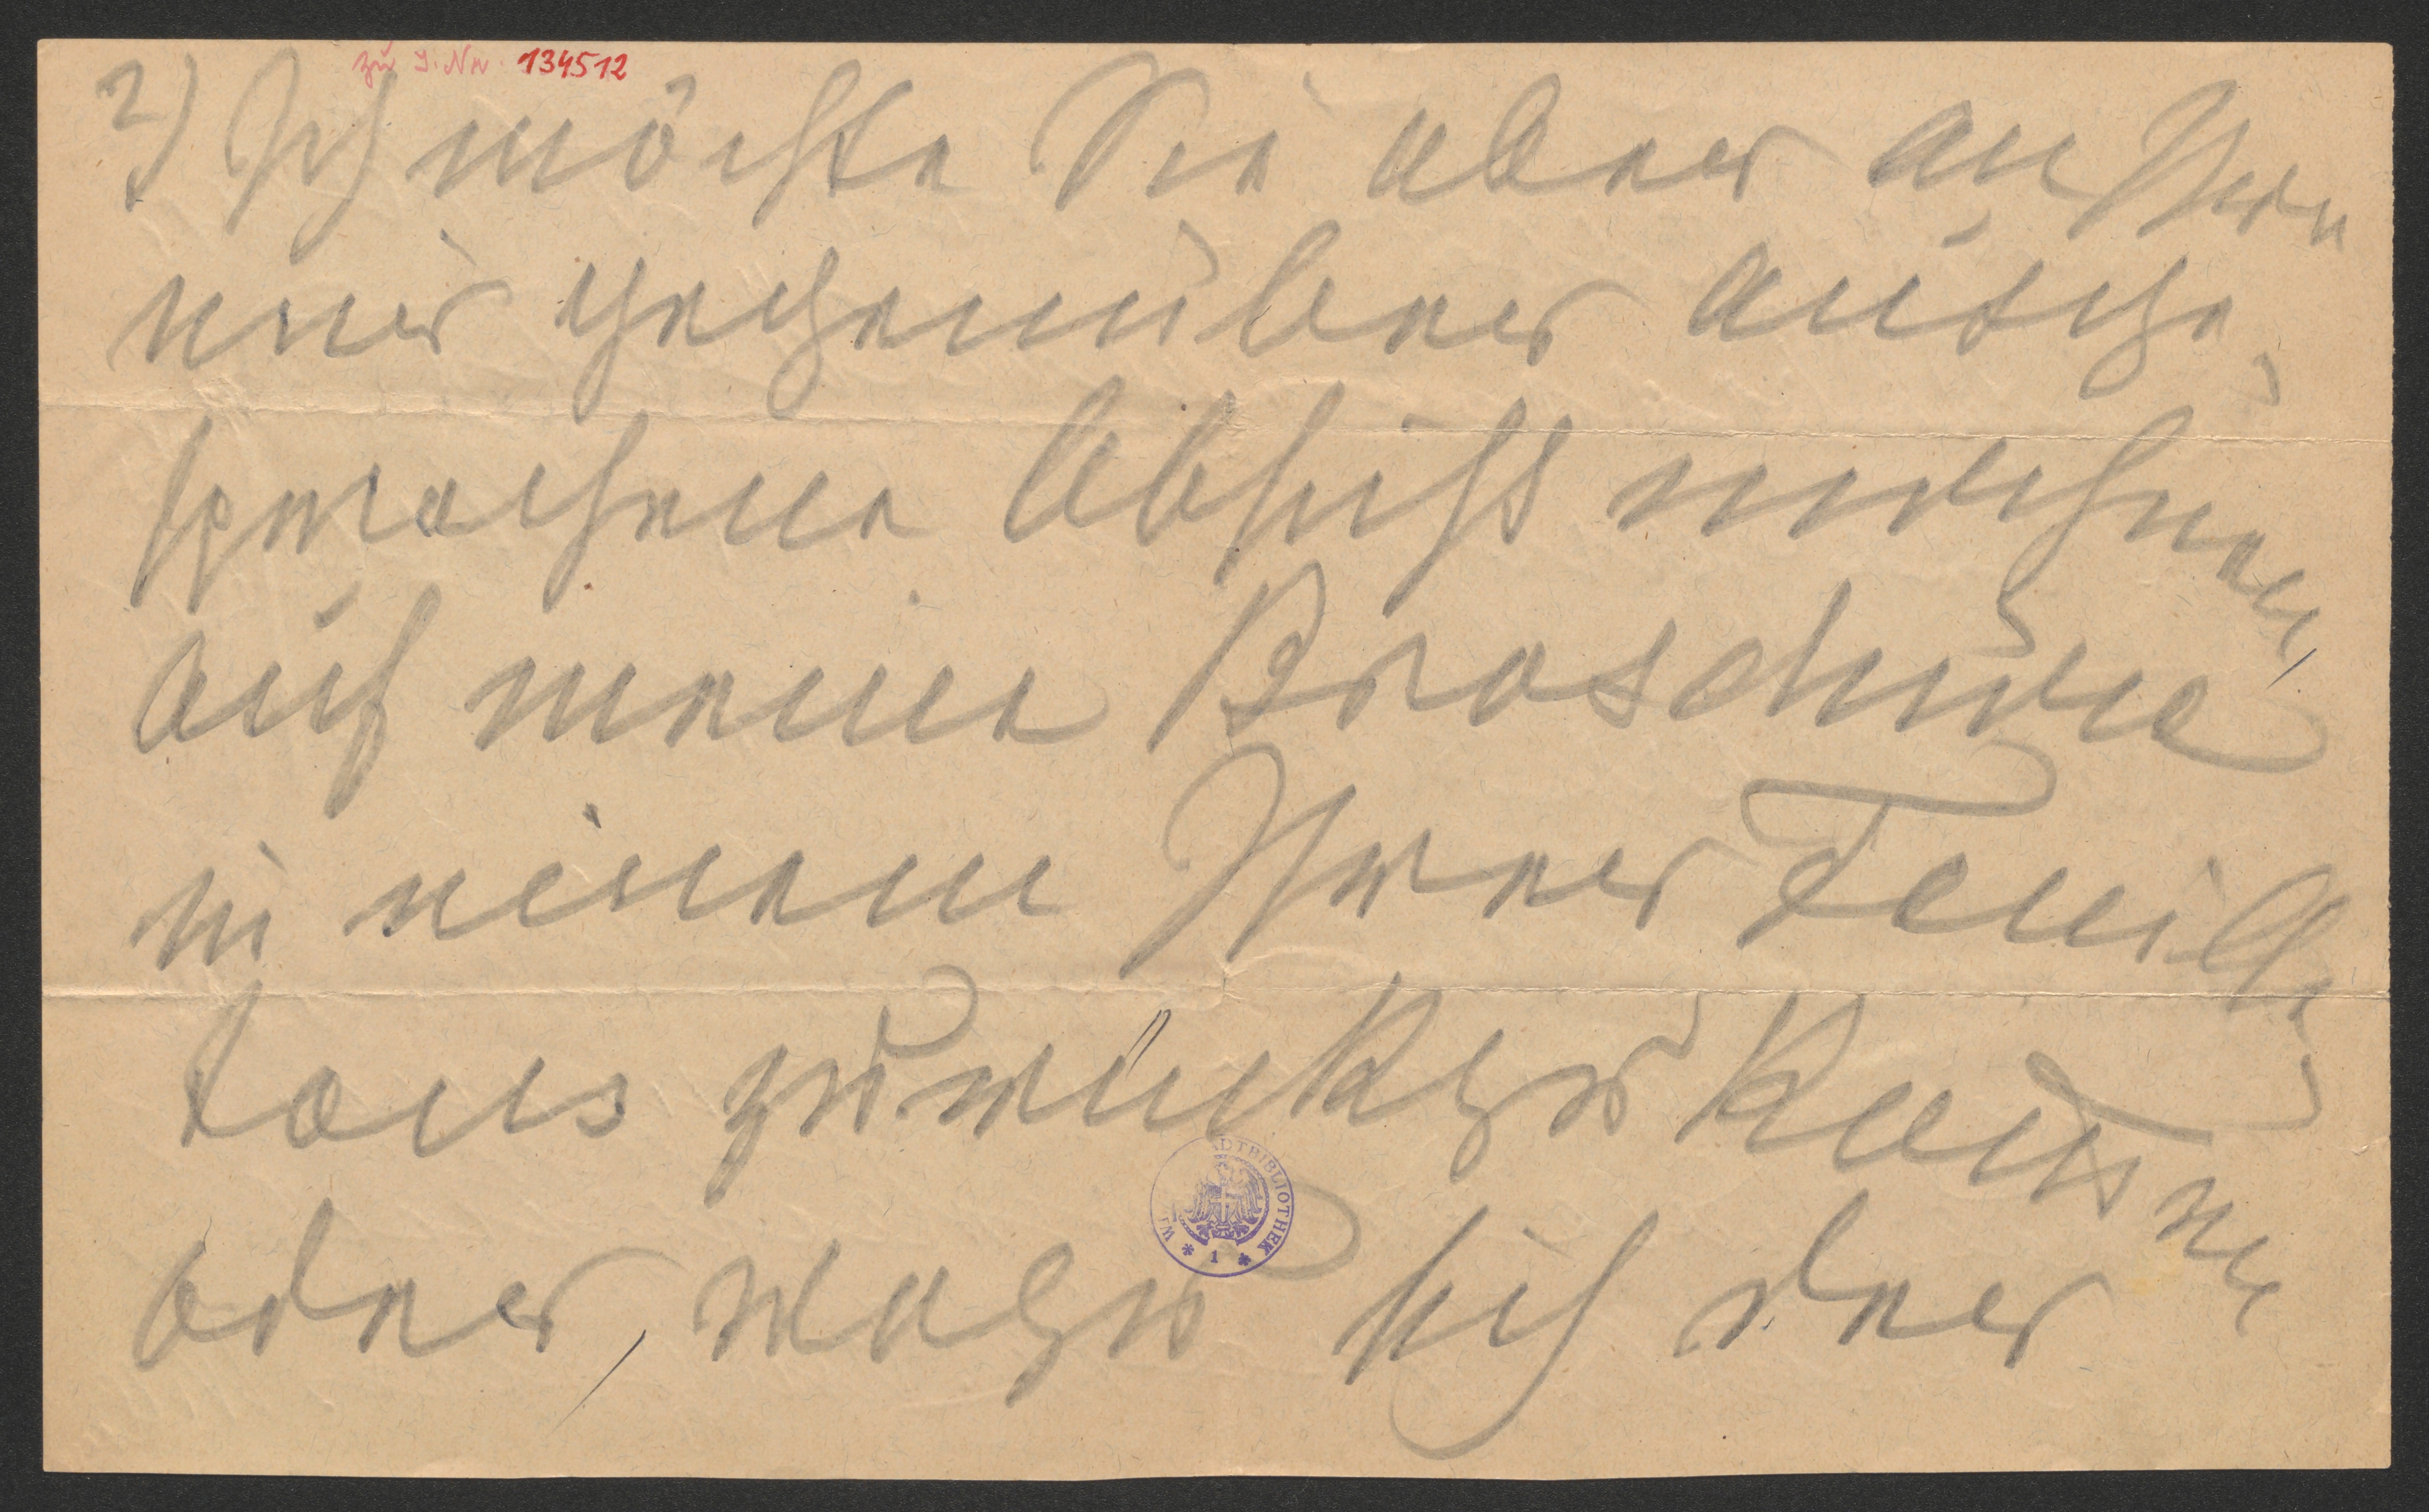 zu I. Nr. 134512
2) Ich möchte Sie aber an Ihre
mir gegenüber ausge-
sprochene Absicht erinnern,
auf meine Broschüre
in einem Ihrer Feuille-
tons zurückzukommen
oder, wozu sich der
WI ADTBIBLIOTHEK
* 1 *